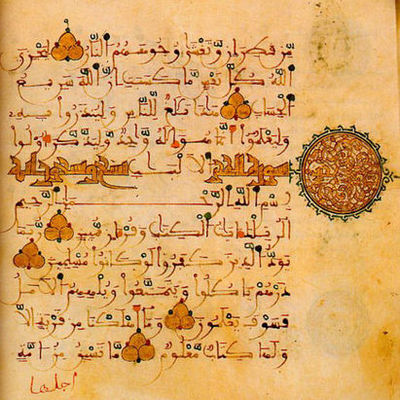 مّن قطران وتغشى وجوههم النّار ليجزي
الله كلّ نفس ما كسبت إنّ الله سريع
الحساب هذا بلغ للنّاس ولينذروا به
وليعلموا أنّما هو إله وحد وليذّكّر أولوا
سورة الحجر الالبب تسع وتسعون اية
بسم الله الرّحمن الرّحيم
الر تلك ايت الكتب وقران مبين ربما
يودّ الّذين كفروا لو كانوا مسلمين
ذرهم ياكلوا ويتمتّعوا ويلههم الامل
فسوف يعلمون وما اهلكنا من قرية الّا
ولها كتاب مّعلوم مّا تسبق من امّة
اجلها